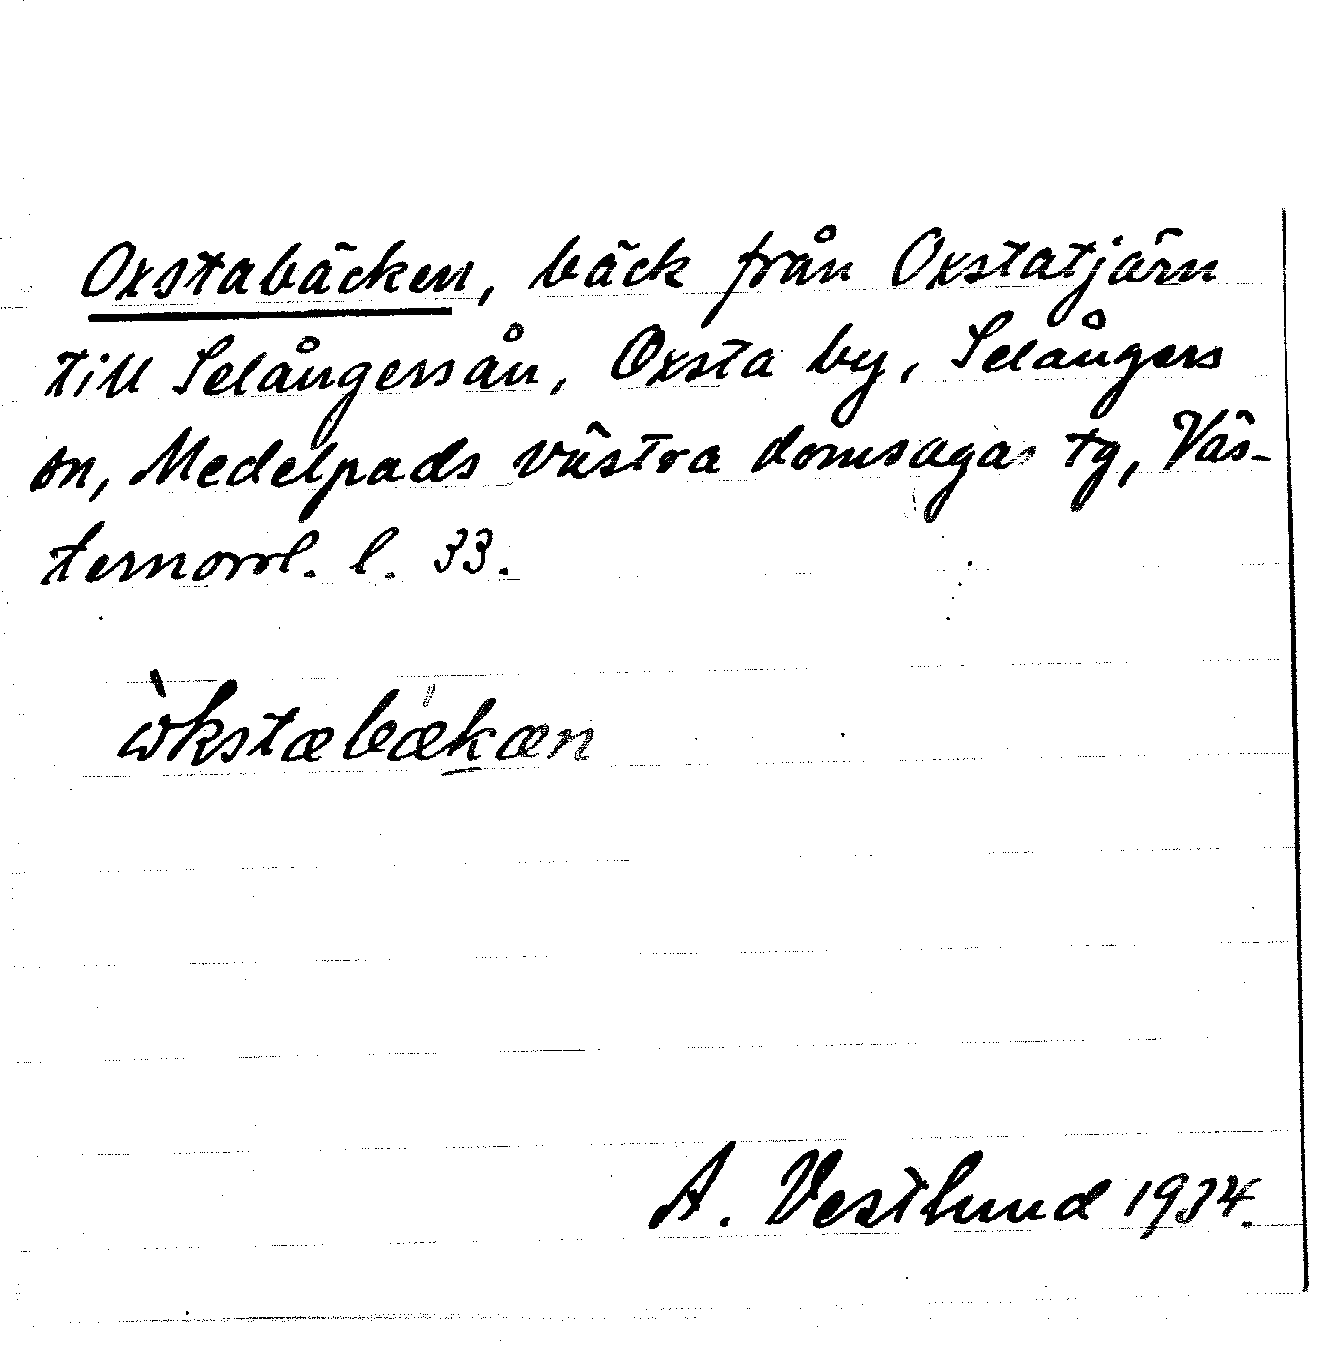 Oxstabäcken, bäck från Oxstatjärn
till Selångersån, Oxsta by, Selångers
sn, Medelpads västra domsagas tg, Väs-
ternorrl. l. 33.
ὼkstæbækæn
A. Vestlund 1934.